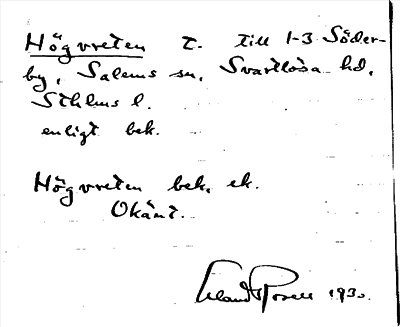 Högvreten t. till 1-3 Söder-
by, Salems sn, Svartlösa hd,
Sthlms l.
enligt bek.
Högvreten bek. ek.
Okänt.
Erland Rosell 1930.